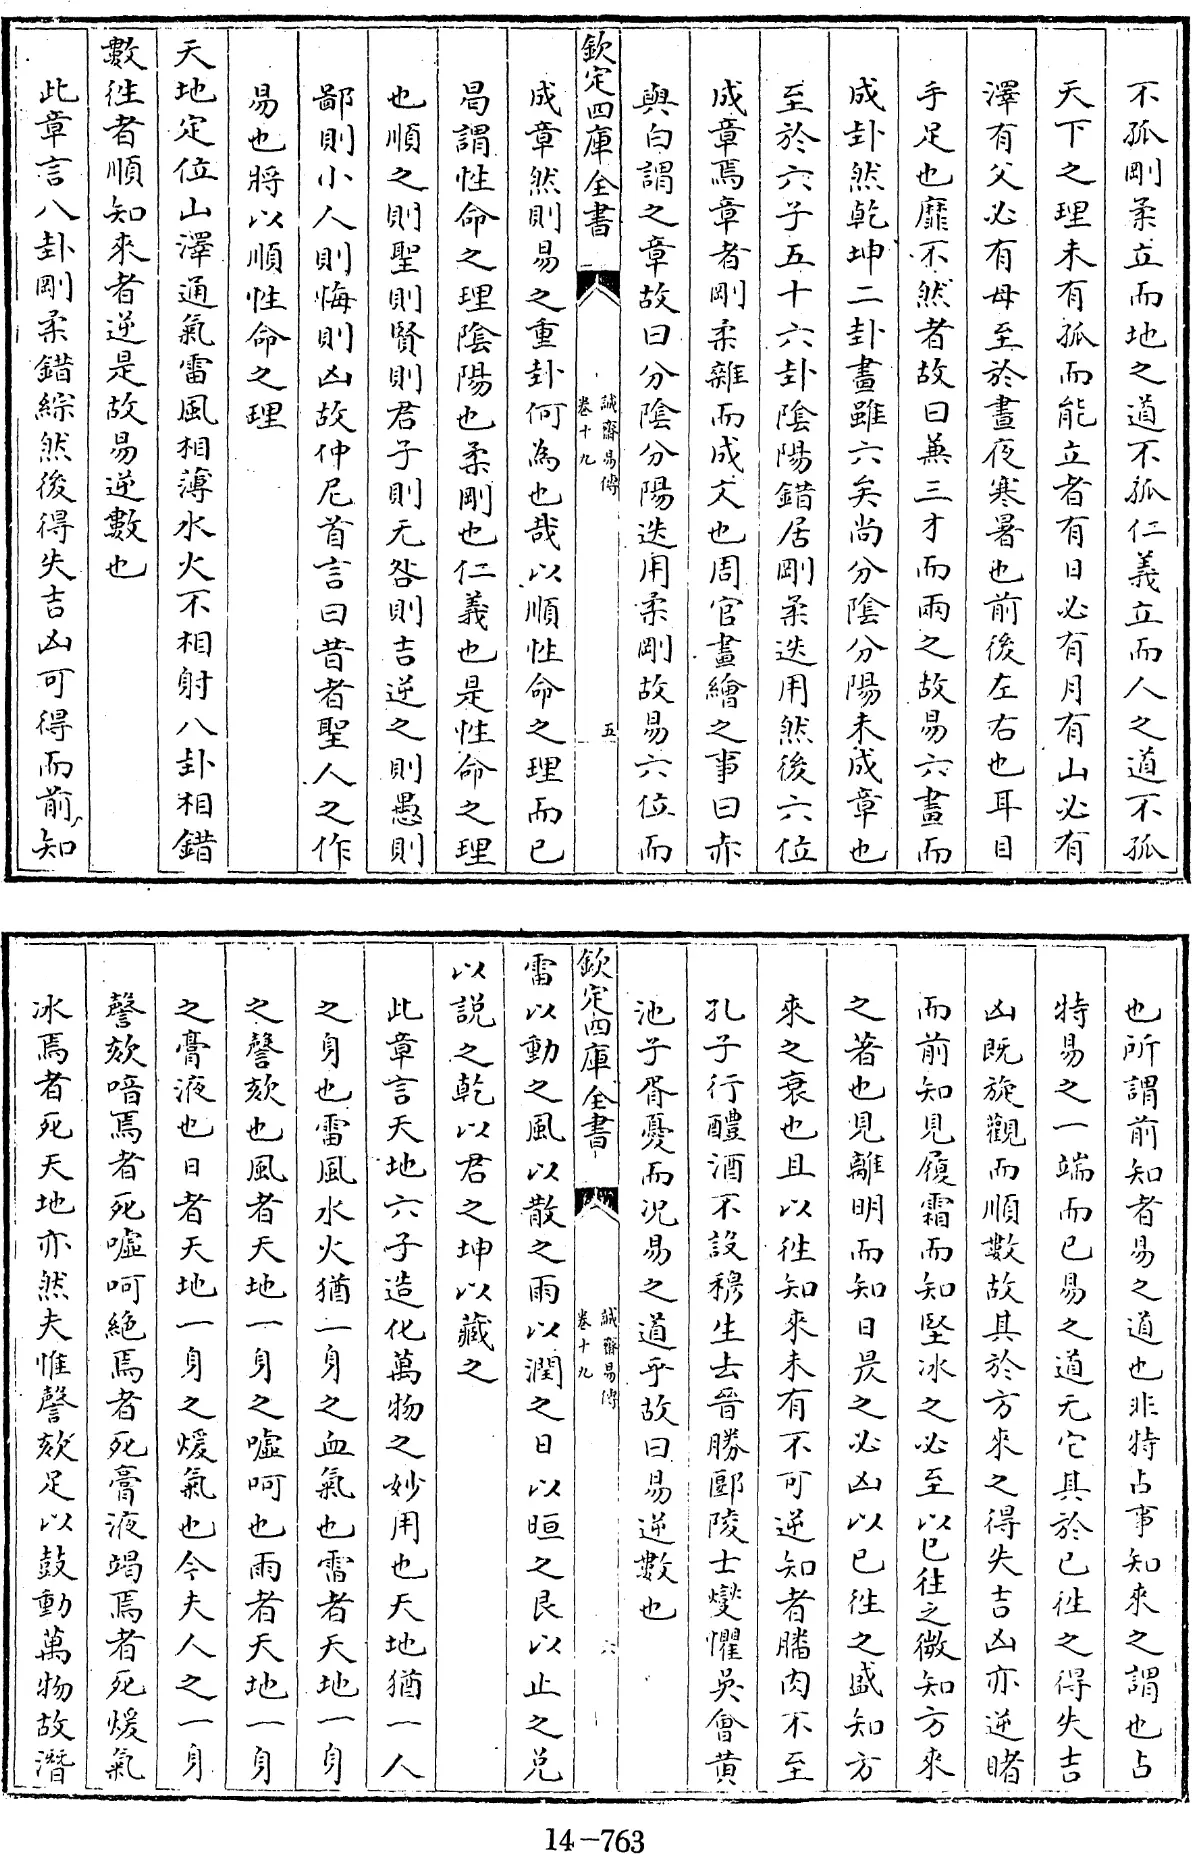 不孤剛柔立而地之道不孤仁義立而人之道不孤
天下之理未有孤而能立者有日必有月有山必有
澤有父必有母至於晝夜寒暑也前後左右也耳目
手足也靡不然者故曰兼三才而兩之故易六畫而
成卦然乾坤二卦畫雖六矣尚分陰分陽未成章也
至於六子五十六卦陰陽錯居剛柔迭用然後六位
成章焉章者剛柔雜而成文也周官畫繪之事曰赤
與白謂之章故曰分陰分陽迭用柔剛故易六位而
欽定四庫全書
誠齋易傳
卷十九
五
成章然則易之重卦何為也哉以順性命之理而已
曷謂性命之理陰陽也柔剛也仁義也是性命之理
也順之則聖則賢則君子則无咎則吉逆之則愚則
鄙則小人則悔則凶故仲尼首言曰昔者聖人之作
易也將以順性命之理
天地定位山澤通氣雷風相薄水火不相射八卦相錯
數徃者順知來者逆是故易逆數也
此章言八卦剛柔錯綜然後得失吉凶可得而前知
也所謂前知者易之道也非特占事知來之謂也占
特易之一端而已易之道无它其於已徃之得失吉
凶既旋觀而順數故其於方來之得失吉凶亦逆睹
而前知見履霜而知堅冰之必至以已往之微知方來
之著也見離明而知日昃之必凶以已徃之盛知方
來之衰也且以徃知來未有不可逆知者膰肉不至
孔子行醴酒不設穆生去晉勝鄢陵士燮懼吳會黄
池子胥憂而况易之道乎故曰易逆數也
欽定四庫全書
誠齋易傳
卷十九
六
雷以動之風以散之雨以潤之日以晅之艮以止之兑
以説之乾以君之坤以藏之
此章言天地六子造化萬物之妙用也天地猶一人
之身也雷風水火猶一身之血氣也雷者天地一身
之謦欬也風者天地一身之噓呵也雨者天地一身
之膏液也日者天地一身之煖氣也今夫人之一身
謦欬喑焉者死噓呵絶焉者死膏液竭焉者死煖氣
冰焉者死天地亦然夫惟謦欬足以鼓動萬物故潛
14-763